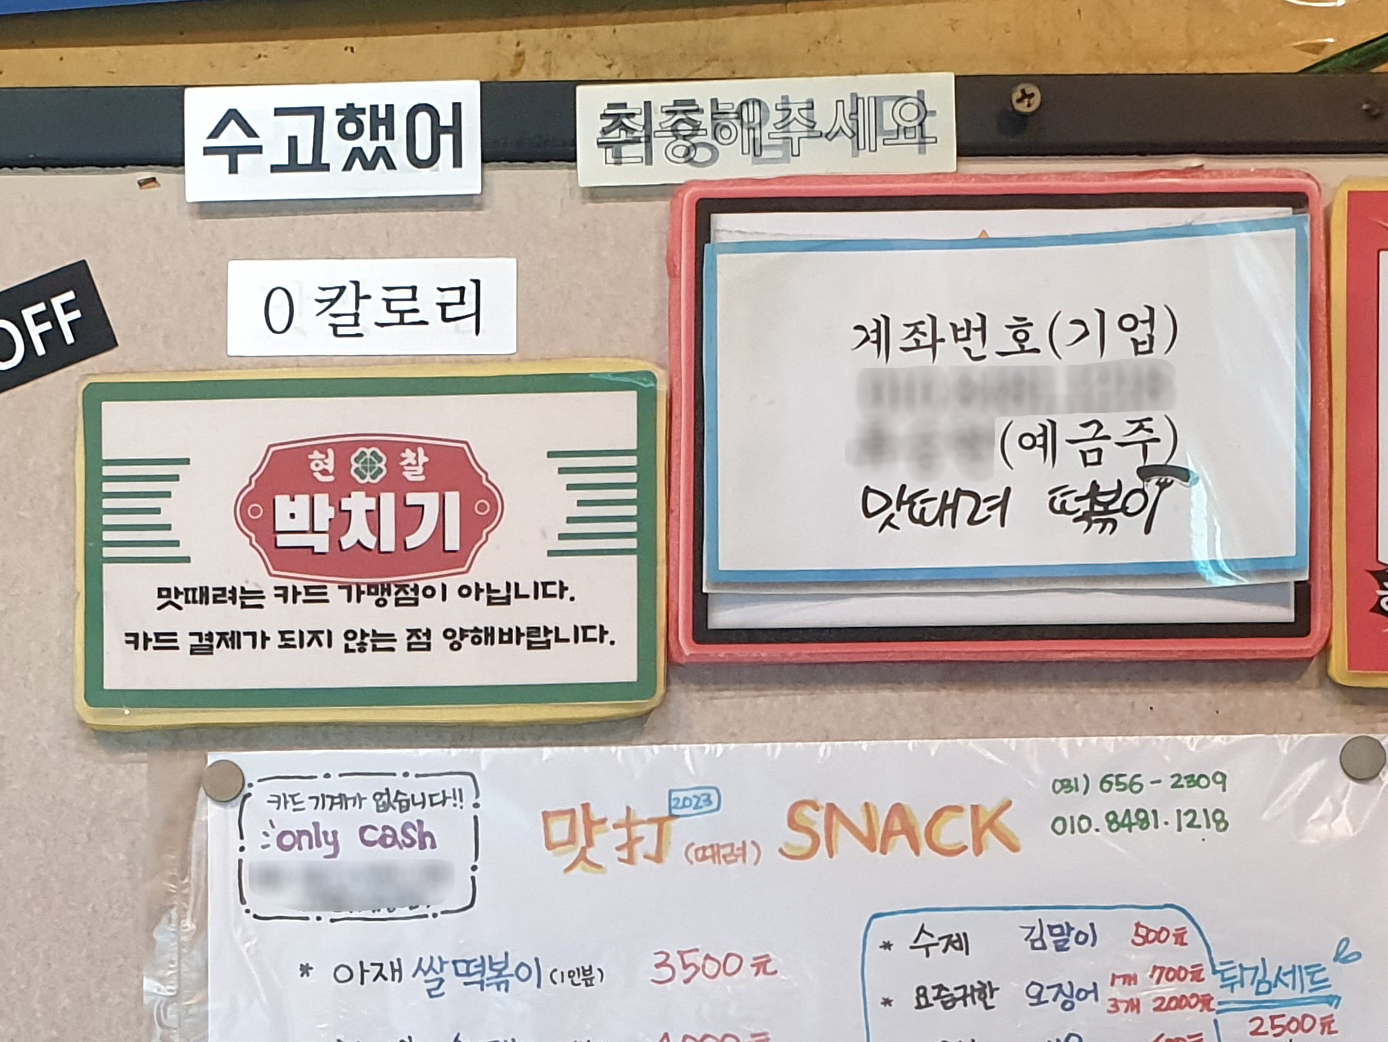 수고했어
취중해주세요
OFF
0 칼로리
계좌번호(기업)
(예금주)
맛때려 떡볶이
현 찰
박치기
맛때려는 카드 가맹점이 아닙니다.
카드 결제가 되지 않는 점 양해바랍니다.
카드기계가 없습니다!!
only cash
맛打(때려) SNACK
2023
031) 656-2309
010.8481.1218
* 아재 쌀떡볶이(1인분) 3500元
* 수제 김말이 500元
* 요즘귀한 오징어 1개 700元
3개 2000元
튀김세트
2500元